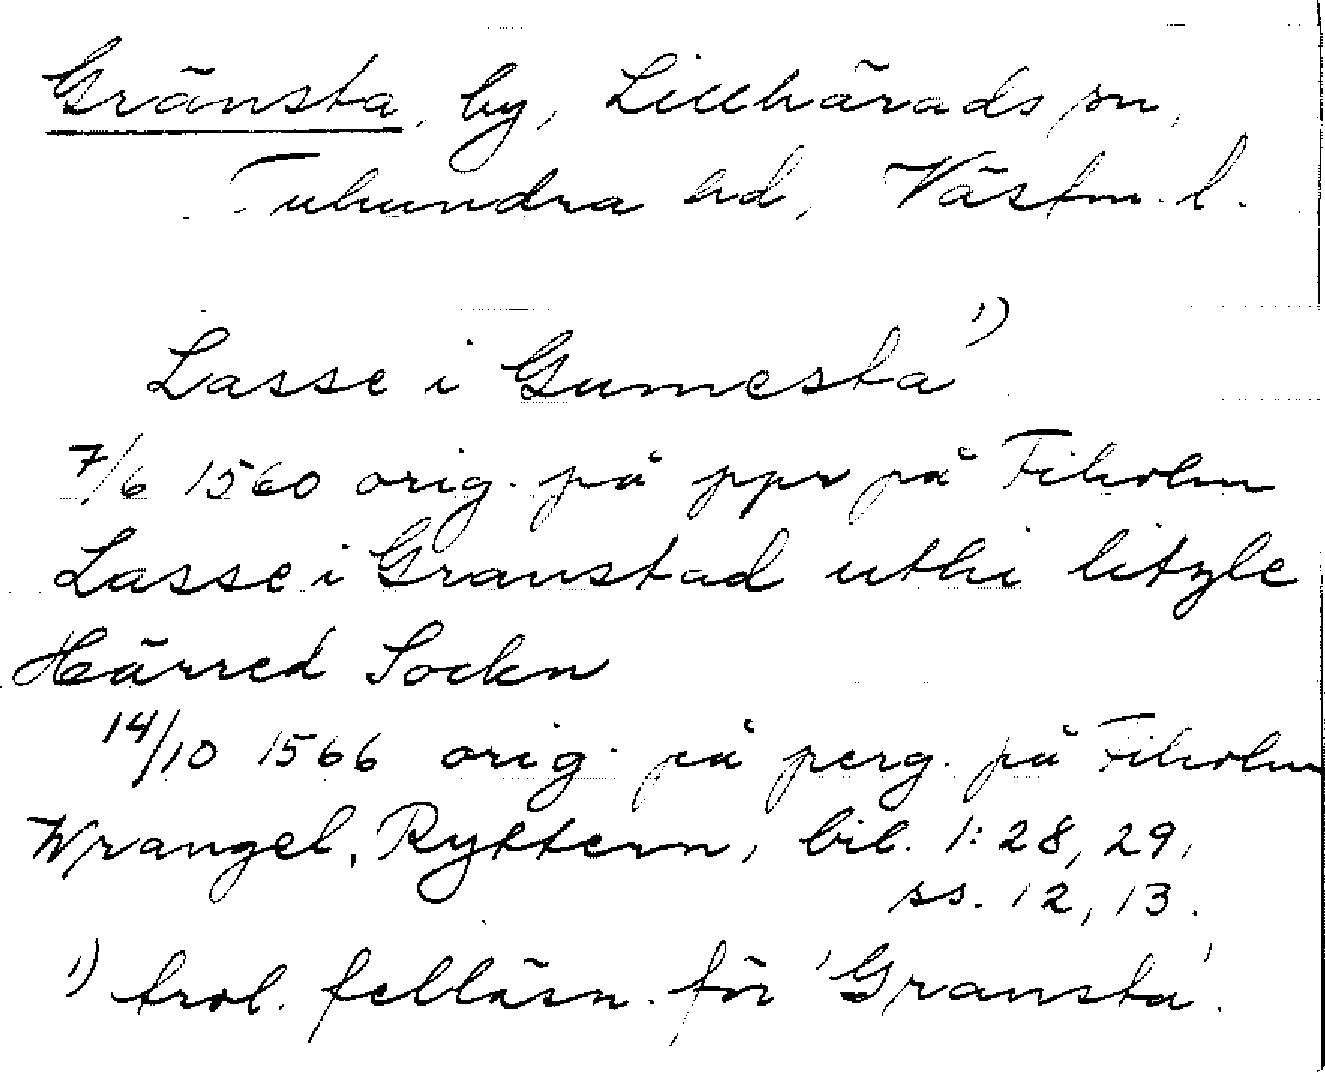 Gränsta, by, Lillhärads sn,
Tuhundra hd, Västm. l.
Lasse i Gumesta 1)
7/6 1560 orig. på ppr på Fiholm
Lasse i Granstad uthi litzle
Härred Sockn
14/10 1566 orig. på perg. på Fiholm
Wrangel, Ryttern, bil. 1:28, 29,
ss. 12, 13.
1) trol. felläsn. för 'Gransta'.